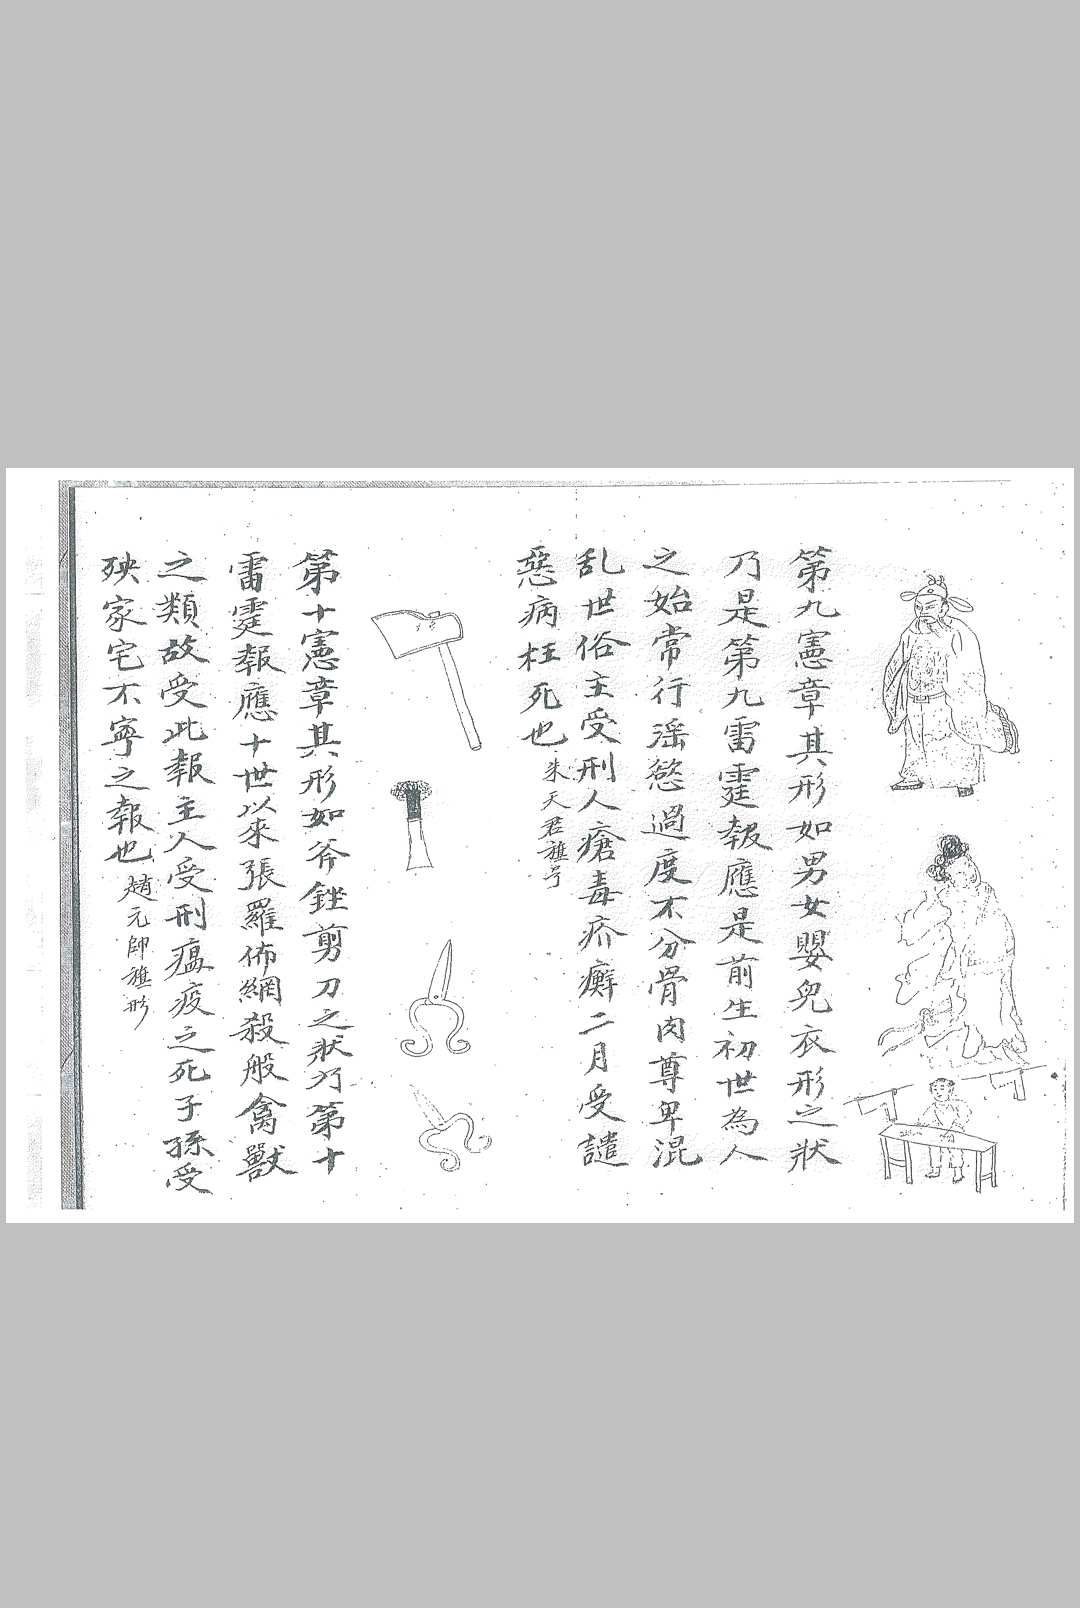 第九憲章其形如男女嬰兒衣形之狀
乃是第九雷霆報應是前生初世為人
之始常行滛慾過度不分骨肉尊卑混
乱世俗主受刑人瘡毒疥癬二月受譴
惡病枉死也 朱天君旗号
第十憲章其形如斧銼剪刀之狀乃第十
雷霆報應十世以來張羅佈網殺般禽獸
之類故受此報主人受刑瘟疫之死子孫受
殃家宅不寧之報也 趙元帥旗形